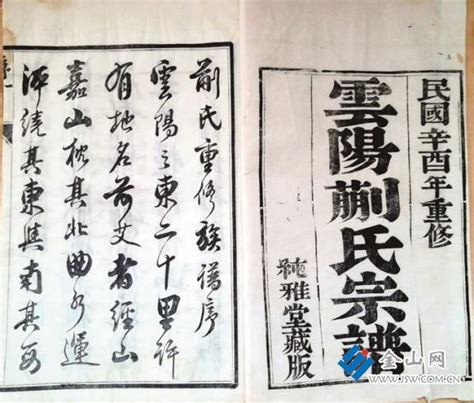 民國辛酉年重修
雲陽蒯氏宗譜
純雅堂藏版
蒯氏重修族譜序
雲陽之東二十里許
有地名前艾者經山
嘉山枕其北曲水運
河繞其東與南其西
金山网
WWW.JSW.COM.CN